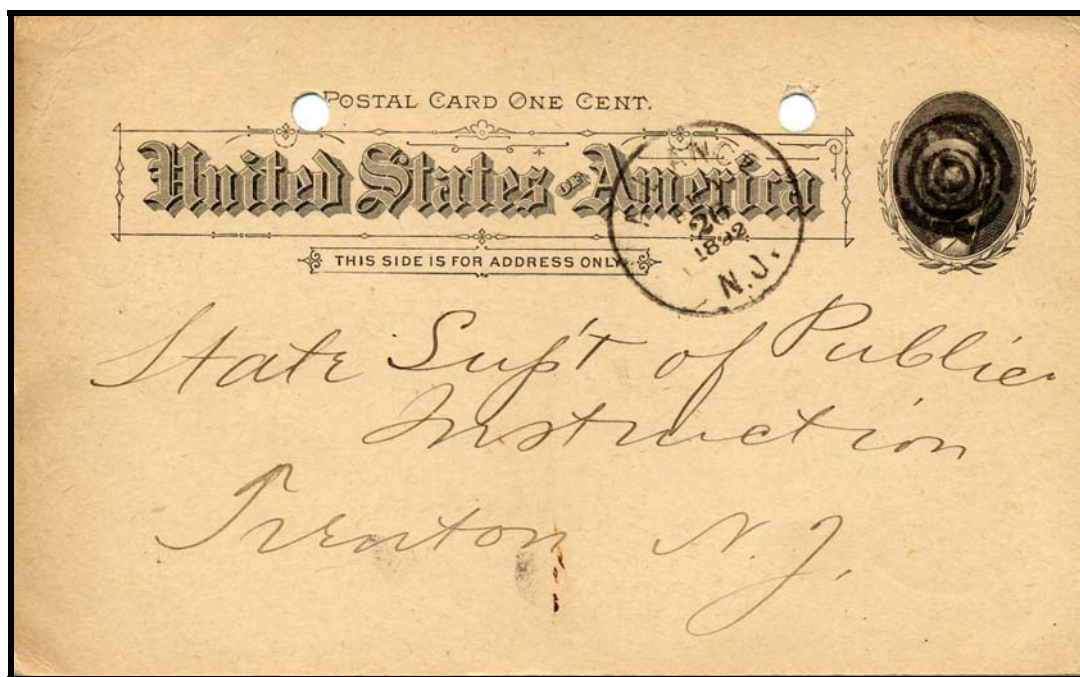 POSTAL CARD ONE CENT.
United States of America
THIS SIDE IS FOR ADDRESS ONLY.
26
1892
N.J.
State Sup't of Public
Instruction
Trenton N.J.